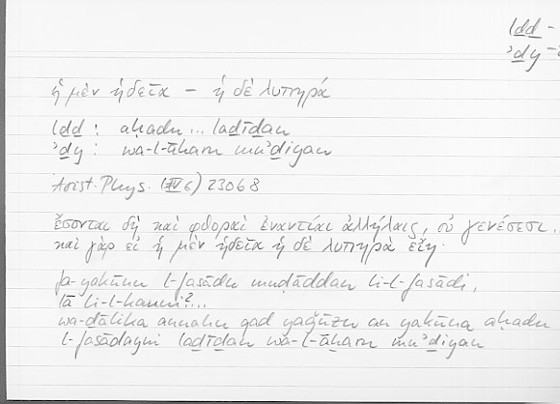 lḏḏ –
ʾḏy –
ἡ μὲν ἡδεῖα – ἡ δὲ λυπηρά
lḏḏ : aḥadu ... laḏīḏan
ʾḏy : wa-l-āḫaru muʾḏiyan
Arist. Phys. (IV 6) 230b8
ἔσονται δὴ καὶ φθοραὶ ἐναντίαι ἀλλήλαις, οὐ γενέσεσι ..
καὶ γὰρ εἰ ἡ μὲν ἡδεῖα ἡ δὲ λυπηρὰ εἴη.
fa-yakūnu l-fasādu muḍāddan li-l-fasādi,
lā li-l-kawni? ...
wa-ḏālika annahu qad yaǧūzu an yakūna aḥadu
l-fasādayni laḏīḏan wa-l-āḫaru muʾḏiyan